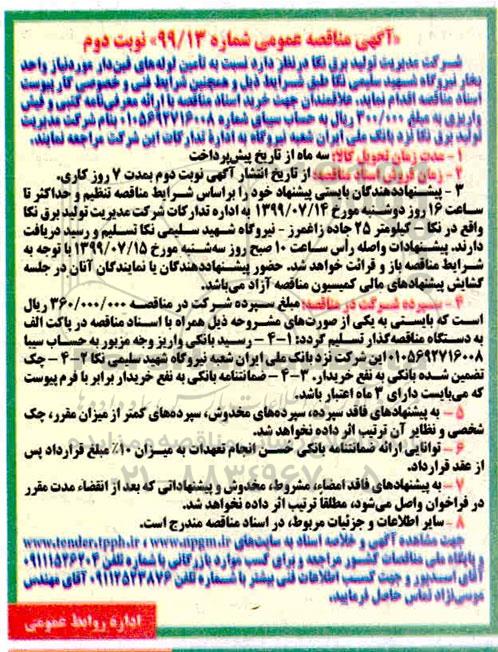 «آگهی مناقصه عمومی شماره ۹۹/۱۳» نوبت دوم
شرکت مدیریت تولید برق نکا در نظر دارد نسبت به تأمین لوله‌های فین‌دار مورد نیاز واحد
بخار نیروگاه شهید سلیمی نکا طبق شرایط ذیل و همچنین شرایط فنی و خصوصی کار پیوست
اسناد مناقصه اقدام نماید. علاقمندان جهت خرید اسناد مناقصه با ارائه معرفی‌نامه کتبی و فیش
واریزی به مبلغ ۳۰۰/۰۰۰ ریال به حساب سیبای شماره ۰۱۰۵۶۹۲۷۱۶۰۰۸ بنام شرکت مدیریت
تولید برق نکا نزد بانک ملی ایران شعبه نیروگاه به ادارۀ تدارکات این شرکت مراجعه نمایند.
۱ - مدت زمان تحویل کالا: سه ماه از تاریخ پیش‌پرداخت
۲ - زمان فروش اسناد مناقصه: از تاریخ انتشار آگهی نوبت دوم بمدت ۷ روز کاری.
۳ - پیشنهاددهندگان بایستی پیشنهاد خود را براساس شرایط مناقصه تنظیم و حداکثر تا
ساعت ۱۶ روز دوشنبه مورخ ۱۳۹۹/۰۷/۱۴ به اداره تدارکات شرکت مدیریت تولید برق نکا
واقع در نکا - کیلومتر ۲۵ جاده زاغمرز - نیروگاه شهید سلیمی نکا تسلیم و رسید دریافت
دارند. پیشنهادات واصله رأس ساعت ۱۰ صبح روز سه‌شنبه مورخ ۱۳۹۹/۰۷/۱۵ با توجه به
شرایط مناقصه باز و قرائت خواهد شد. حضور پیشنهاددهندگان یا نمایندگان آنان در جلسه
گشایش پیشنهادهای مالی کمیسیون مناقصه آزاد می‌باشد.
۴ - سپرده شرکت در مناقصه: مبلغ سپرده شرکت در مناقصه ۳۶۰/۰۰۰/۰۰۰ ریال
است که بایستی به یکی از صورت‌های مشروحه ذیل همراه با اسناد مناقصه در پاکت الف
به دستگاه مناقصه‌گذار تسلیم گردد: ۱-۴ - رسید بانکی واریز وجه مزبور به حساب سیبا
۰۱۰۵۶۹۲۷۱۶۰۰۸ این شرکت نزد بانک ملی ایران شعبه نیروگاه شهید سلیمی نکا ۲-۴ - چک
تضمین شده بانکی به نفع خریدار. ۳-۴ - ضمانتنامه بانکی به نفع خریدار برابر با فرم پیوست
که می‌بایست دارای ۳ ماه اعتبار باشد.
۵ - به پیشنهادهای فاقد سپرده، سپرده‌های مخدوش، سپرده‌های کمتر از میزان مقرر، چک
شخصی و نظایر آن ترتیب اثر داده نخواهد شد.
۶ - توانایی ارائه ضمانتنامه بانکی حسن انجام تعهدات به میزان ۱۰٪ مبلغ قرارداد پس
از عقد قرارداد.
۷ - به پیشنهادهای فاقد امضاء، مشروط، مخدوش و پیشنهاداتی که بعد از انقضاء مدت مقرر
در فراخوان واصل می‌شود، مطلقاً ترتیب اثر داده نخواهد شد.
۸ - سایر اطلاعات و جزئیات مربوط، در اسناد مناقصه مندرج است.
جهت مشاهده آگهی و خلاصه اسناد به سایت‌های www.npgm.ir ، www.tender.tpph.ir
و پایگاه ملی مناقصات کشور مراجعه و برای کسب موارد بازرگانی با شماره تلفن ۰۹۱۱۱۵۲۶۲۰۴
آقای اسدپور و جهت کسب اطلاعات فنی بیشتر با شماره تلفن ۰۹۱۱۲۵۲۳۸۷۶ آقای مهندس
موسی‌نژاد تماس حاصل فرمایید.
اداره روابط عمومی